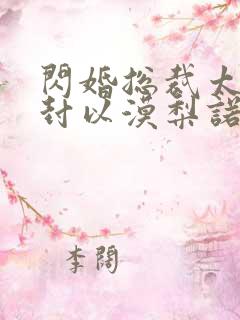 閃婚總裁太
封以漠梨諾
李闊